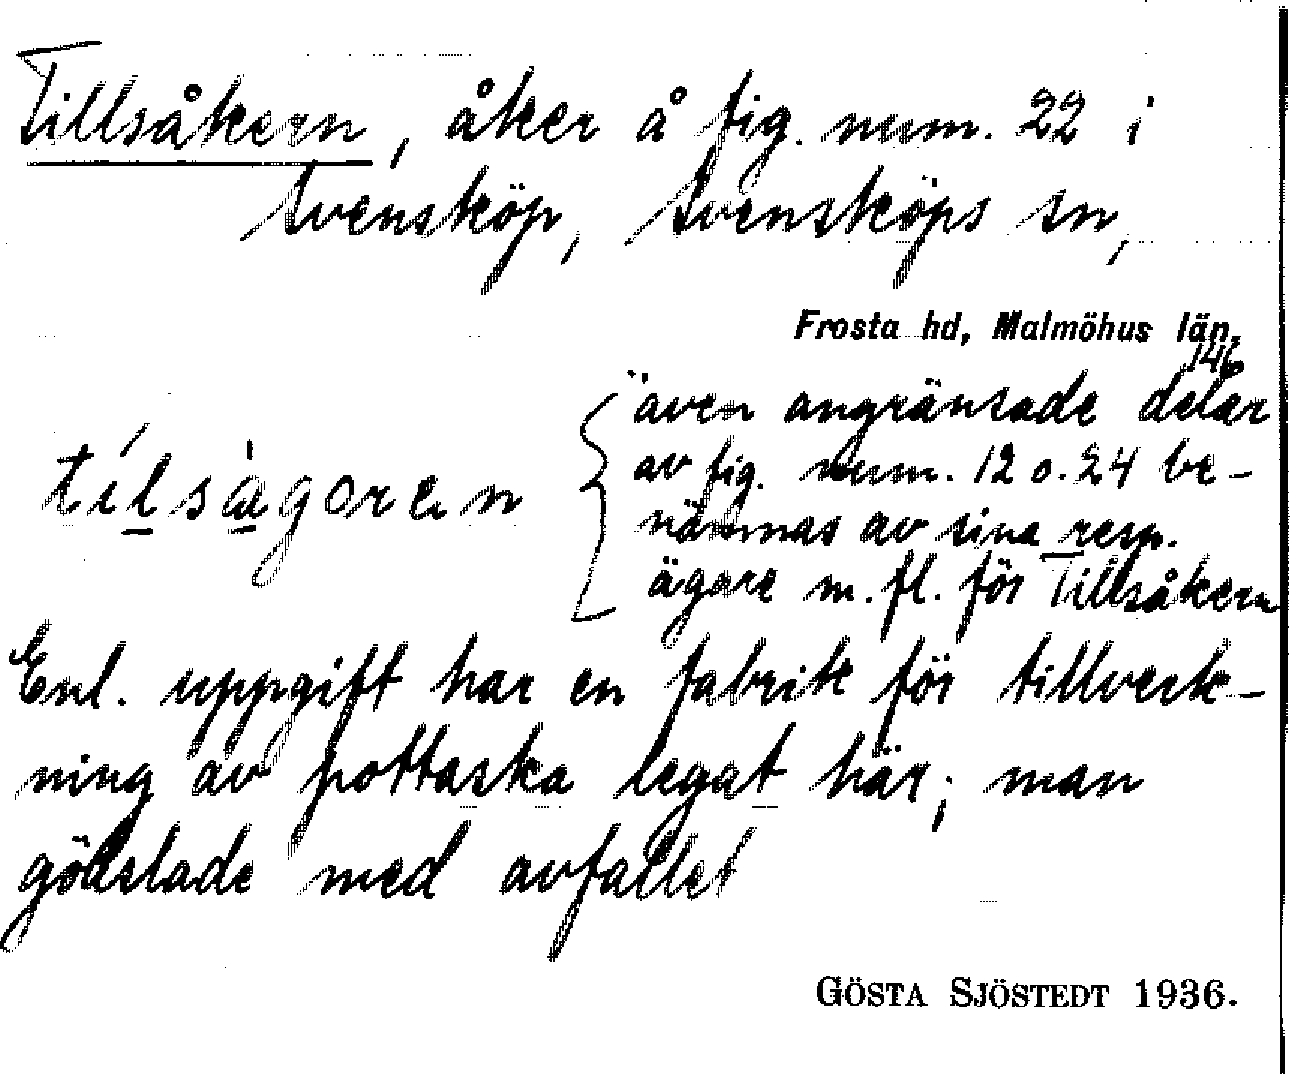 Tillsåkern, åker å fig. num. 22 i
Svensköp, Svensköps sn,
Frosta hd, Malmöhus län.
146
tílsàgoren
även angränsade delar
av fig. num. 12 o. 24 be-
nämnas av sina resp.
ägare m. fl. för Tillsåkern
Enl. uppgift har en fabrik för tillverk-
ning av pottaska legat här; man
gödslade med avfallet
GÖSTA SJÖSTEDT 1936.